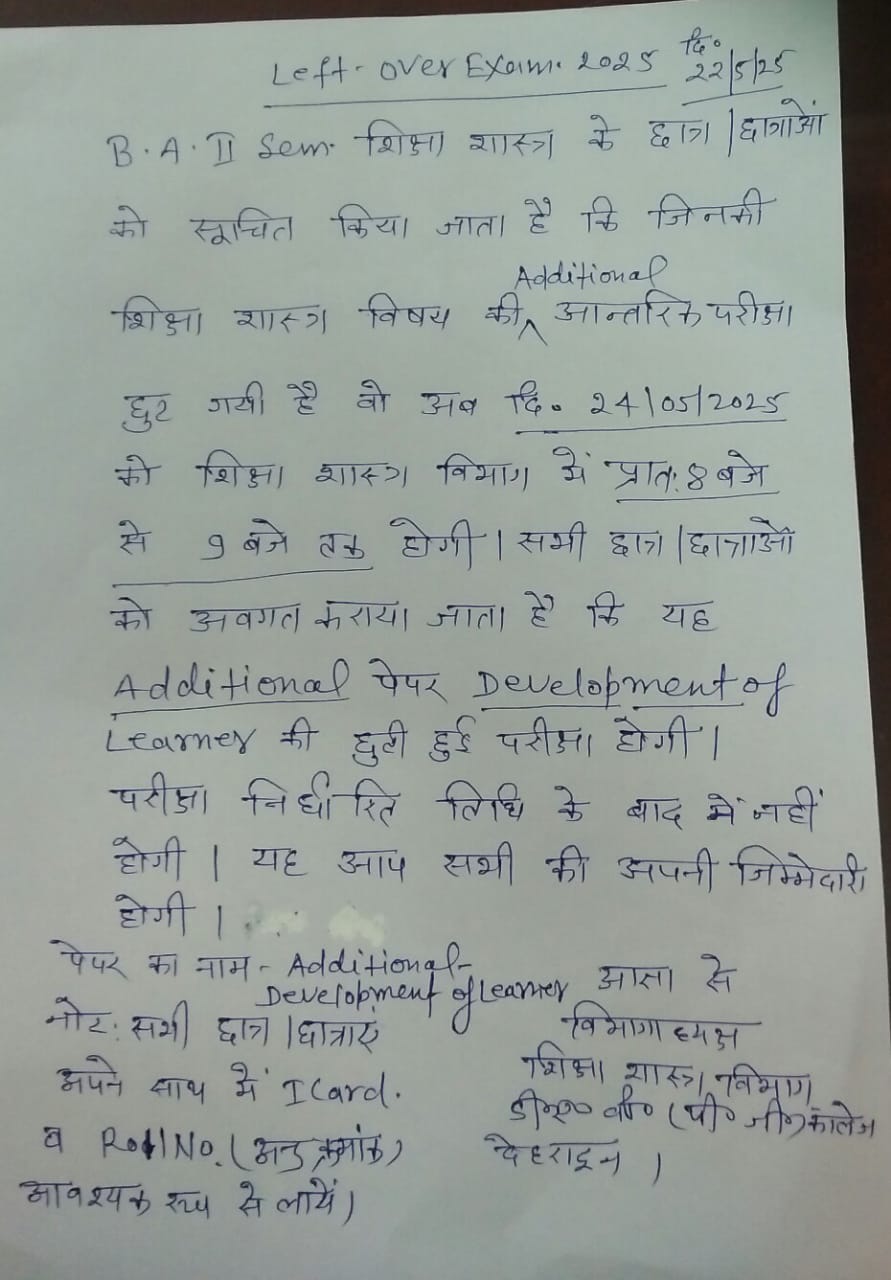 Left-Over Exam. 2025 दि० 22/5/25
B.A. II Sem. शिक्षा शास्त्र के छात्र/छात्राओं
को सूचित किया जाता है कि जिनकी
शिक्षा शास्त्र विषय की Additional आन्तरिक परीक्षा
छुट गयी है वो अब दि० 24/05/2025
को शिक्षा शास्त्र विभाग में प्रात: 8 बजे
से 9 बजे तक होगी। सभी छात्र/छात्राओं
को अवगत कराया जाता है कि यह
Additional पेपर Development of
Learner की छुटी हुई परीक्षा होगी।
परीक्षा निर्धारित तिथि के बाद में नहीं
होगी। यह आप सभी की अपनी जिम्मेदारी
होगी।
पेपर का नाम - Additional-
Development of Learner
नोट: सभी छात्र/छात्राएं
अपने साथ में I Card.
व Roll No. (अनुक्रमांक)
आवश्यक रूप से लायें)
आज्ञा से
विभागाध्यक्ष
शिक्षा शास्त्र विभाग
डी०ए० वी० (पी० जी०) कॉलेज
देहरादून।